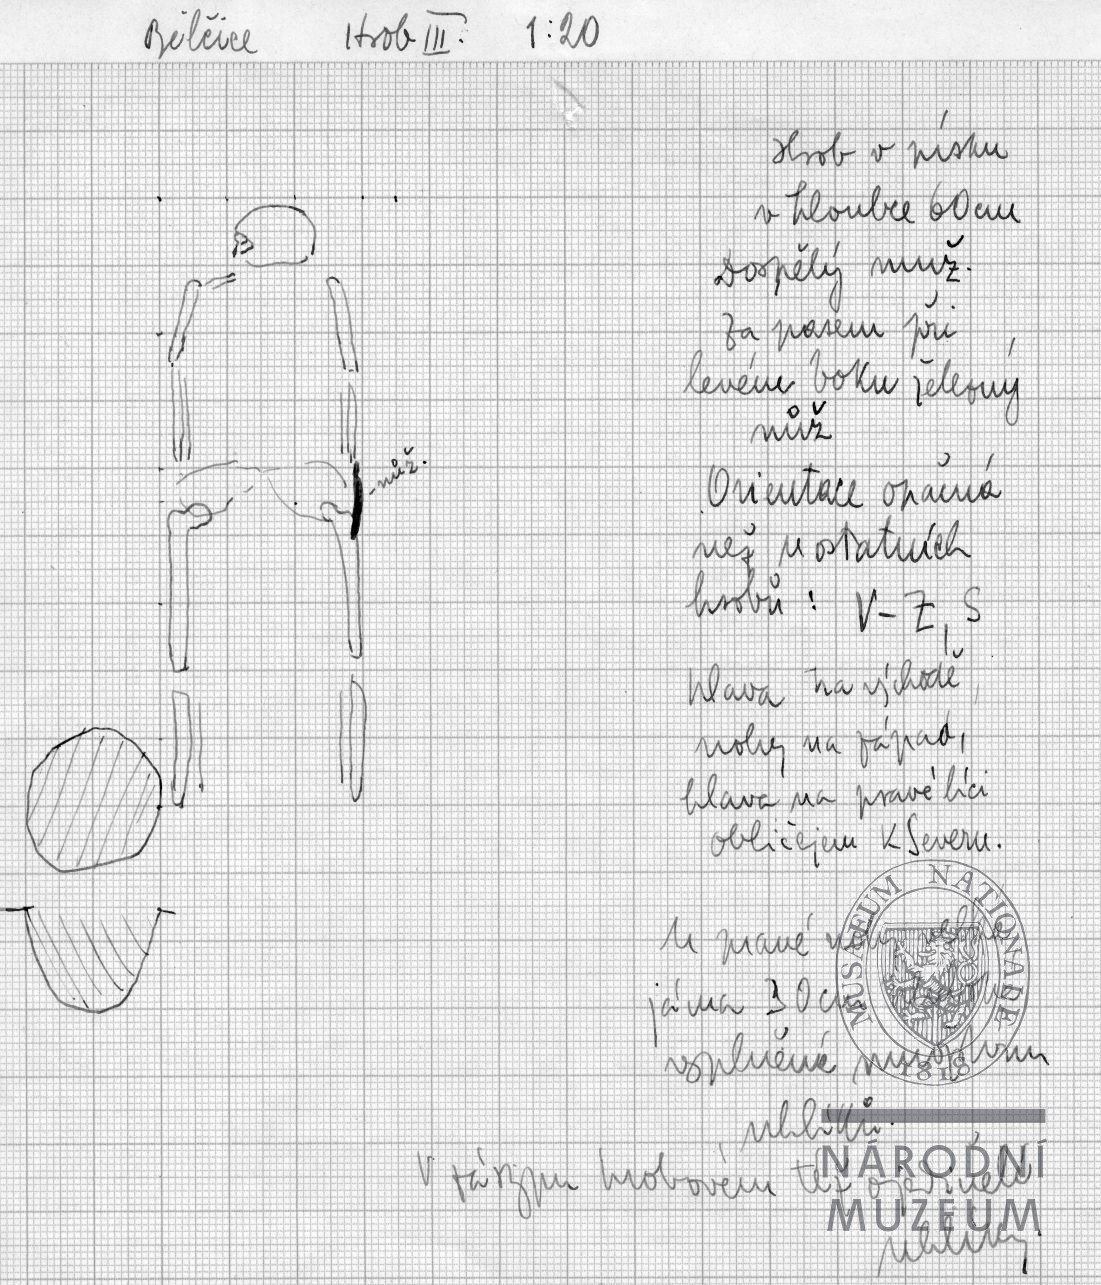 Bělčice Hrob III. 1:20
Hrob v písku
v hloubce 60cm
Dospělý muž.
Za pasem při
levém boku železný
nůž
- nůž.
Orientace opačná
než u ostatních
hrobů: V-Z, S
hlava na východě,
nohy na západ,
hlava na pravé líci
obličejem k Severu.
U pravé
jáma 30cm
vyplněná
uhlíků.
V zásypu hrobovém též ojedinělé
uhlíky.
MUSAEUM NATIONALE
1818
NÁRODNÍ
MUZEUM